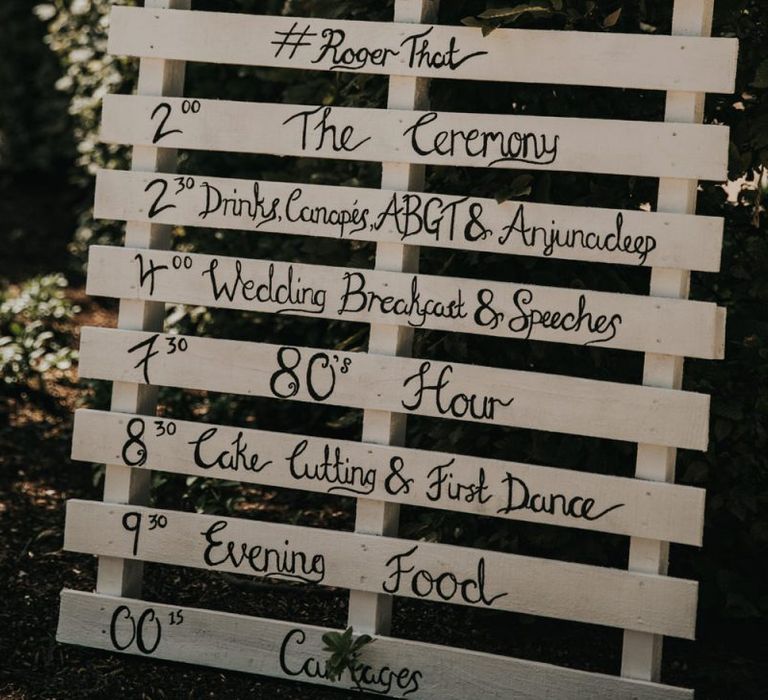 #Roger That
2 00 The Ceremony
2 30 Drinks, Canapés, ABGT & Anjunadeep
4 00 Wedding Breakfast & Speeches
7 30 80's Hour
8 30 Cake Cutting & First Dance
9 30 Evening Food
00 15 Carriages